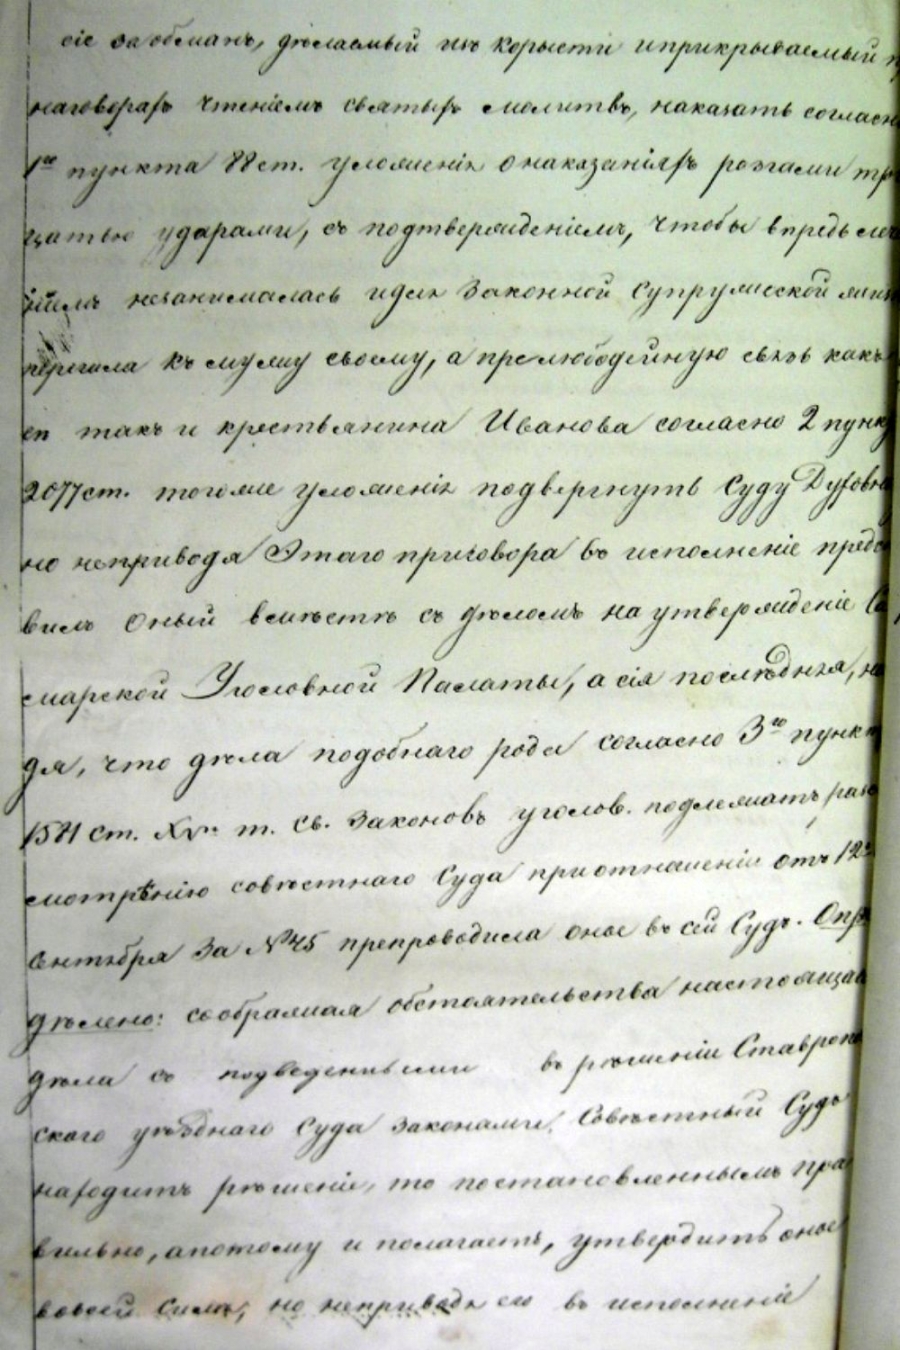 сіе за обманъ, дѣлаемый изъ корысти и прикрываемый
наговорахъ чтеніемъ святыхъ молитвъ, наказать соглас
1го пункта ст. уложенія о наказаніяхъ розгами три
цатью ударами, съ подтвержденіемъ, чтобы впредь
ніемъ незанималась и для законной супружеской жизн
къ мужу своему, а прелюбодейную связь какъ
ея такъ и крестьянина Иванова согласно 2 пунк
2077 ст. тогоже уложенія подвергнуть суду Духовн
но неприводя Этаго приговора въ исполненіе предс
вилъ оный вмѣстѣ съ дѣломъ на утвержденіе Са
марской Уголовной Палаты, а сія послѣдняя, на
дя, что дѣла подобнаго рода согласно 3го пункт
ст. XV т. св. законовъ уголов. подлежатъ раз
смотрѣнію совѣстнаго Суда при отношеніи отъ 12
сентября за № 45 препроводила оное въ сей Судъ. Опре
дѣлено: соображая обстоятельства настоящаго
дѣла съ подведенными въ рѣшеніи Ставропо
скаго уѣзднаго Суда законами, Совѣстный Судъ
находитъ рѣшеніе то постановленнымъ пра
вильно, а потому и полагаетъ, утвердить оное
вовсей силѣ, но неприводя его въ исполненіе